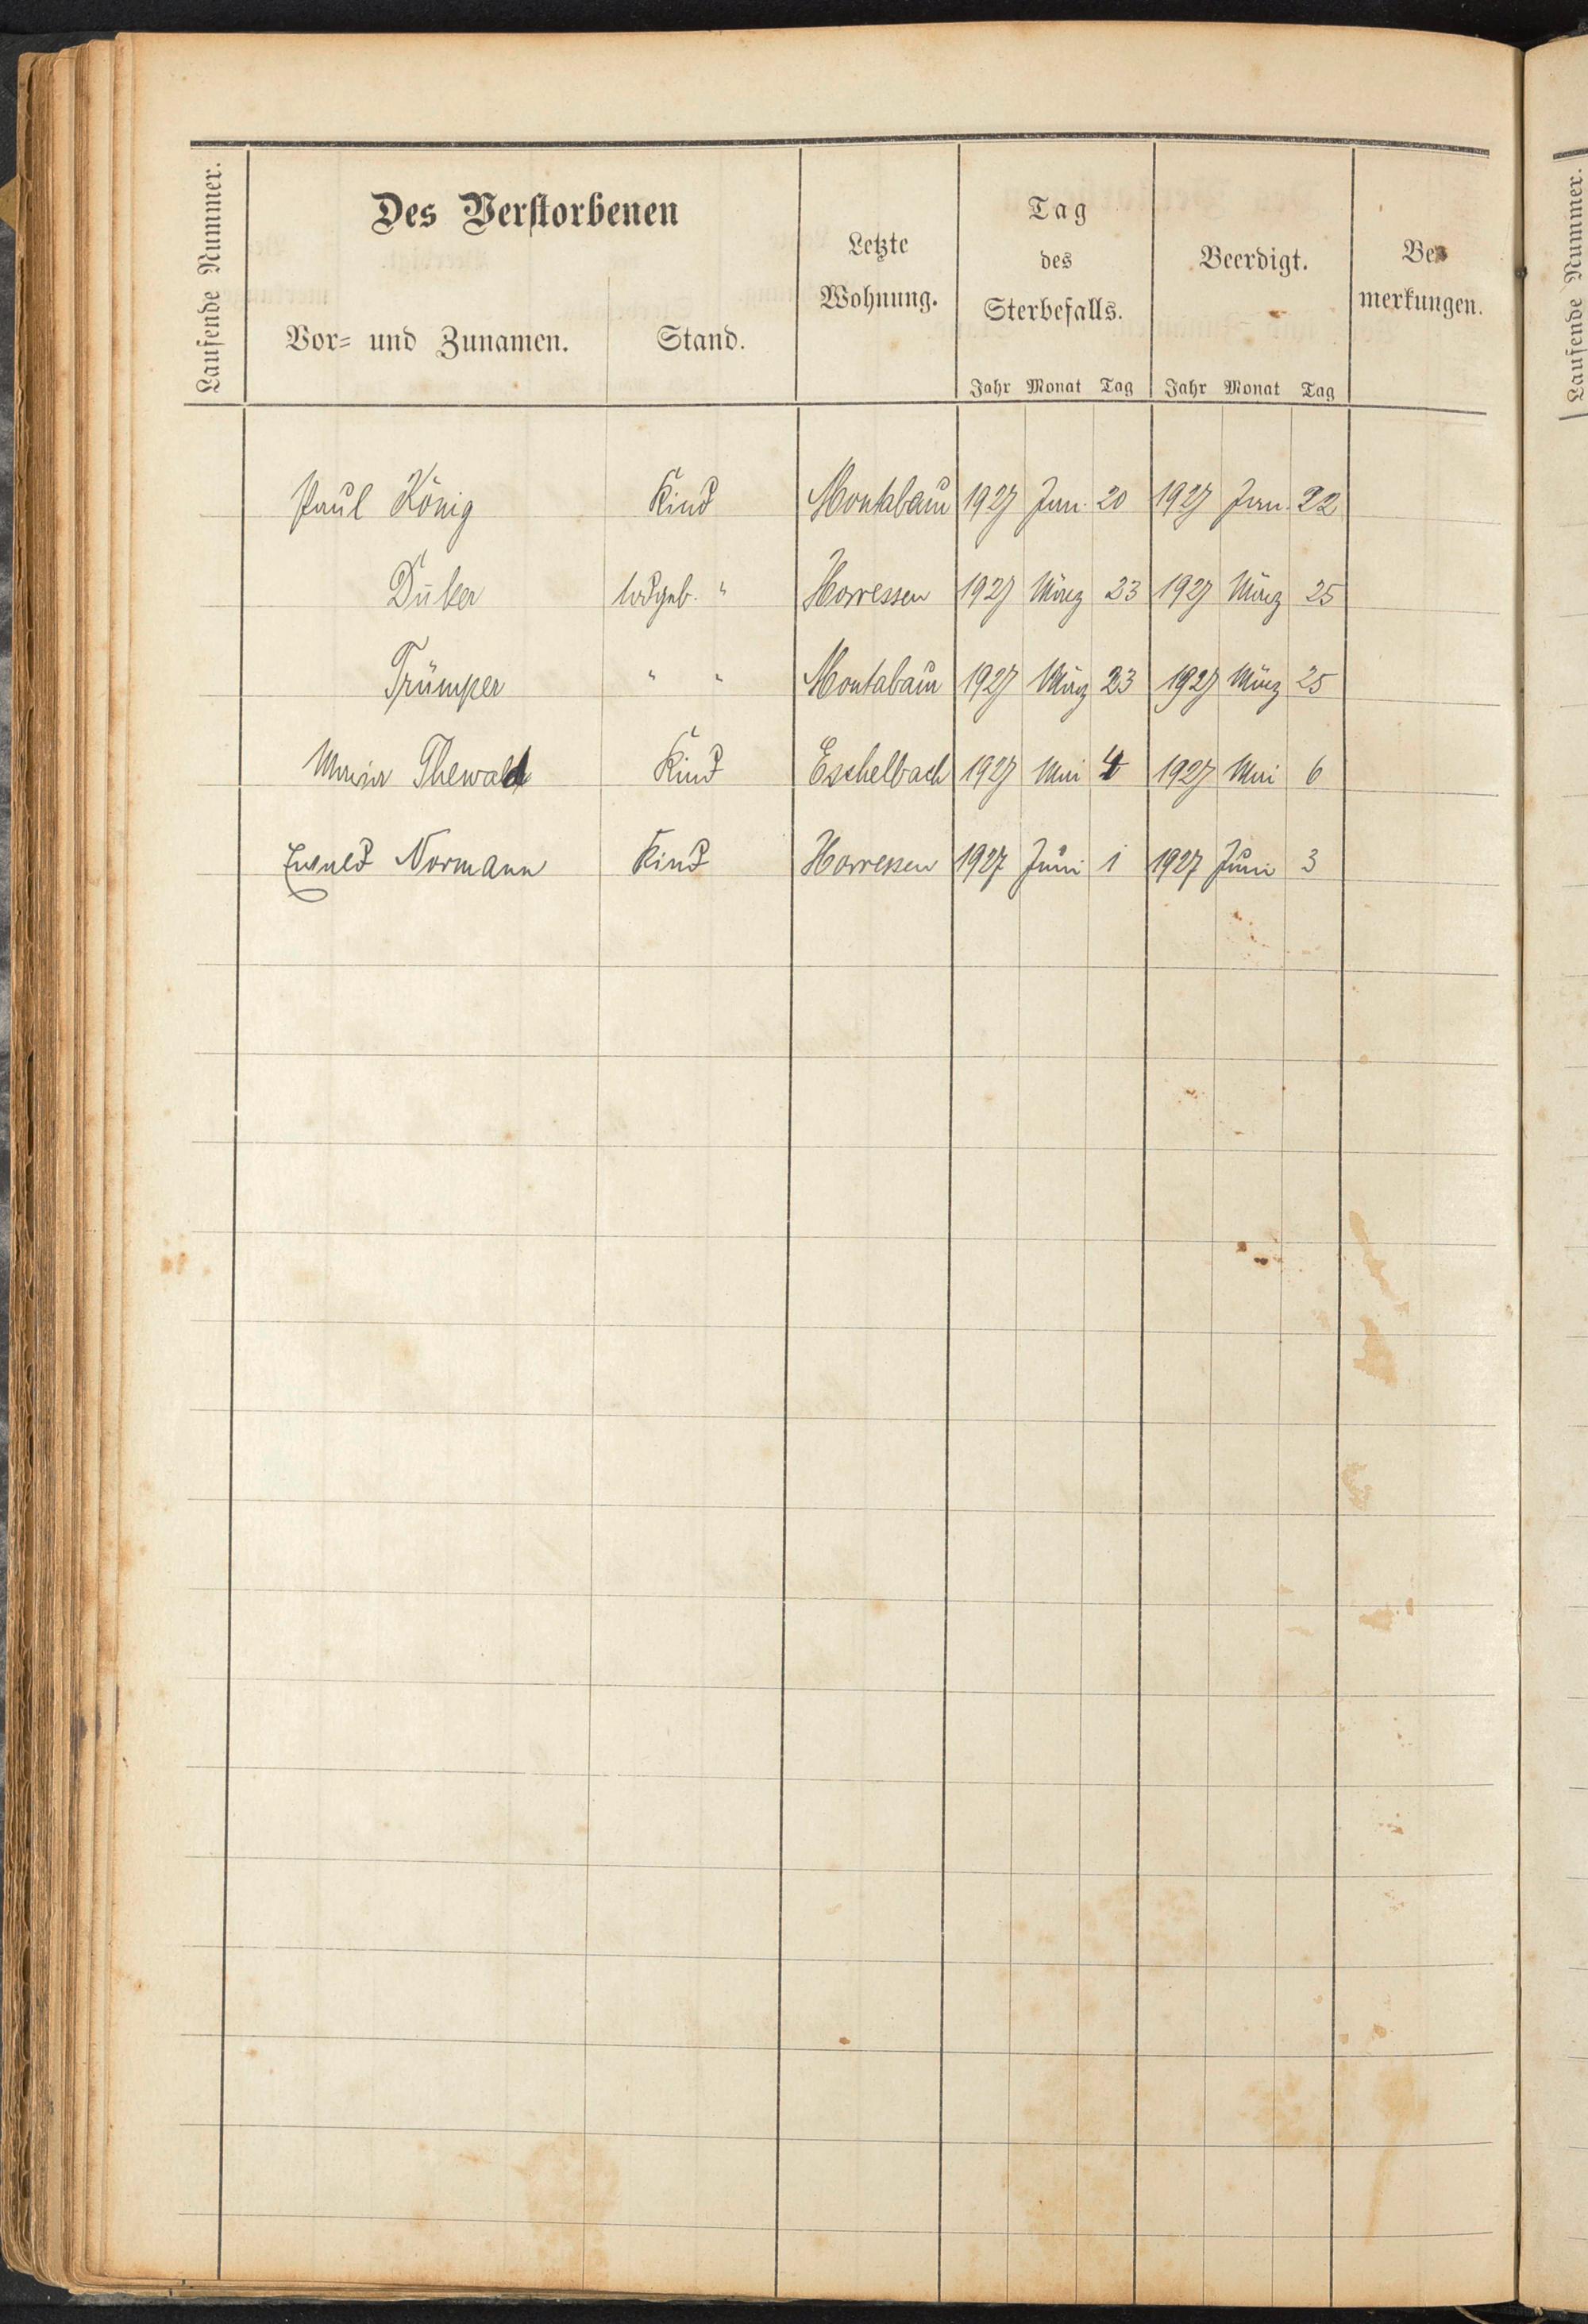 Laufende Nummer.
Des Verstorbenen
Vor= und Zunamen.
Stand.
Letzte
Wohnung.
Tag
des
Sterbefalls.
Jahr Monat Tag
Beerdigt.
Jahr Monat Tag
Be=
merkungen.
Laufende Nummer.
Paul König Kind Montabaur 1927 Jan. 20 1927 Jan. 22
Düker todgeb. " Horressen 1927 März 23 1927 März 25
Trümper " " Montabaur 1927 März 23 1927 März 25
Maria Thewald Kind Eschelbach 1927 Mai 4 1927 Mai 6
Ewald Normann Kind Horressen 1927 Juni 1 1927 Juni 3